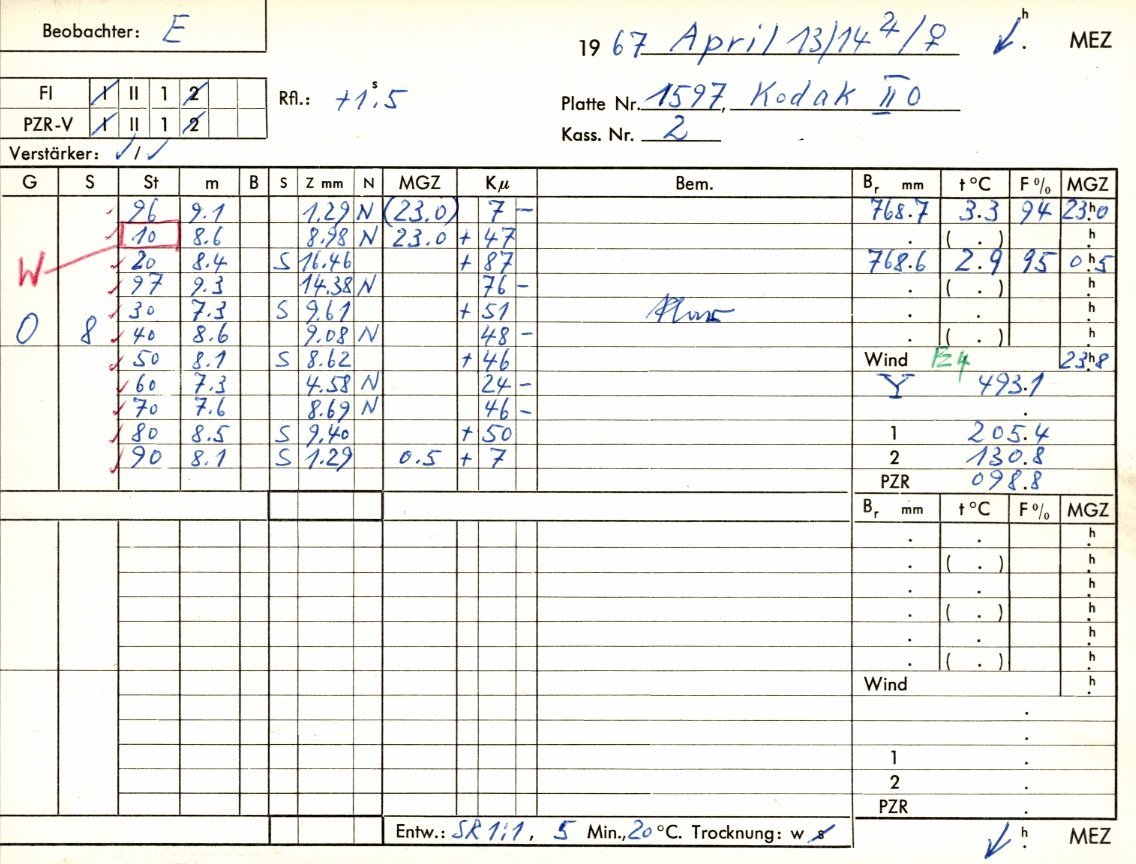 Beobachter: E
19 67 April 13/14 ♃/♀ h . MEZ
FI I II 1 2
PZR-V I II 1 2
Rfl.: +1s.5
Platte Nr. 1597, Kodak II O
Kass. Nr. 2
Verstärker: /
G S St m B S Z mm N MGZ Kμ Bem. Br mm t °C F % MGZ
96 9.1 1.29 N (23.0) 7 – 768.7 3.3 94 23h.0
10 8.6 8.98 N 23.0 + 47 . ( . ) h.
W
20 8.4 S 16.46 + 87 768.6 2.9 95 0h.5
97 9.3 14.38 N 76 – . ( . ) h.
30 7.3 S 9.61 + 51 . . h.
0 8 40 8.6 9.08 N 48 – . ( . ) h.
50 8.1 S 8.62 + 46 Wind Fz4 23h.8
60 7.3 4.58 N 24 – Y 493.1
70 7.6 8.69 N 46 – .
80 8.5 S 9.40 + 50 1 205.4
90 8.1 S 1.29 0.5 + 7 2 130.8
PZR 098.8
Br mm t °C F % MGZ
. . h.
. ( . ) h.
. . h.
. ( . ) h.
. . h.
. ( . ) h.
Wind h.
.
.
1 .
2 .
PZR .
Entw.: SR 1:1, 5 Min., 20 °C. Trocknung: w s
h . MEZ